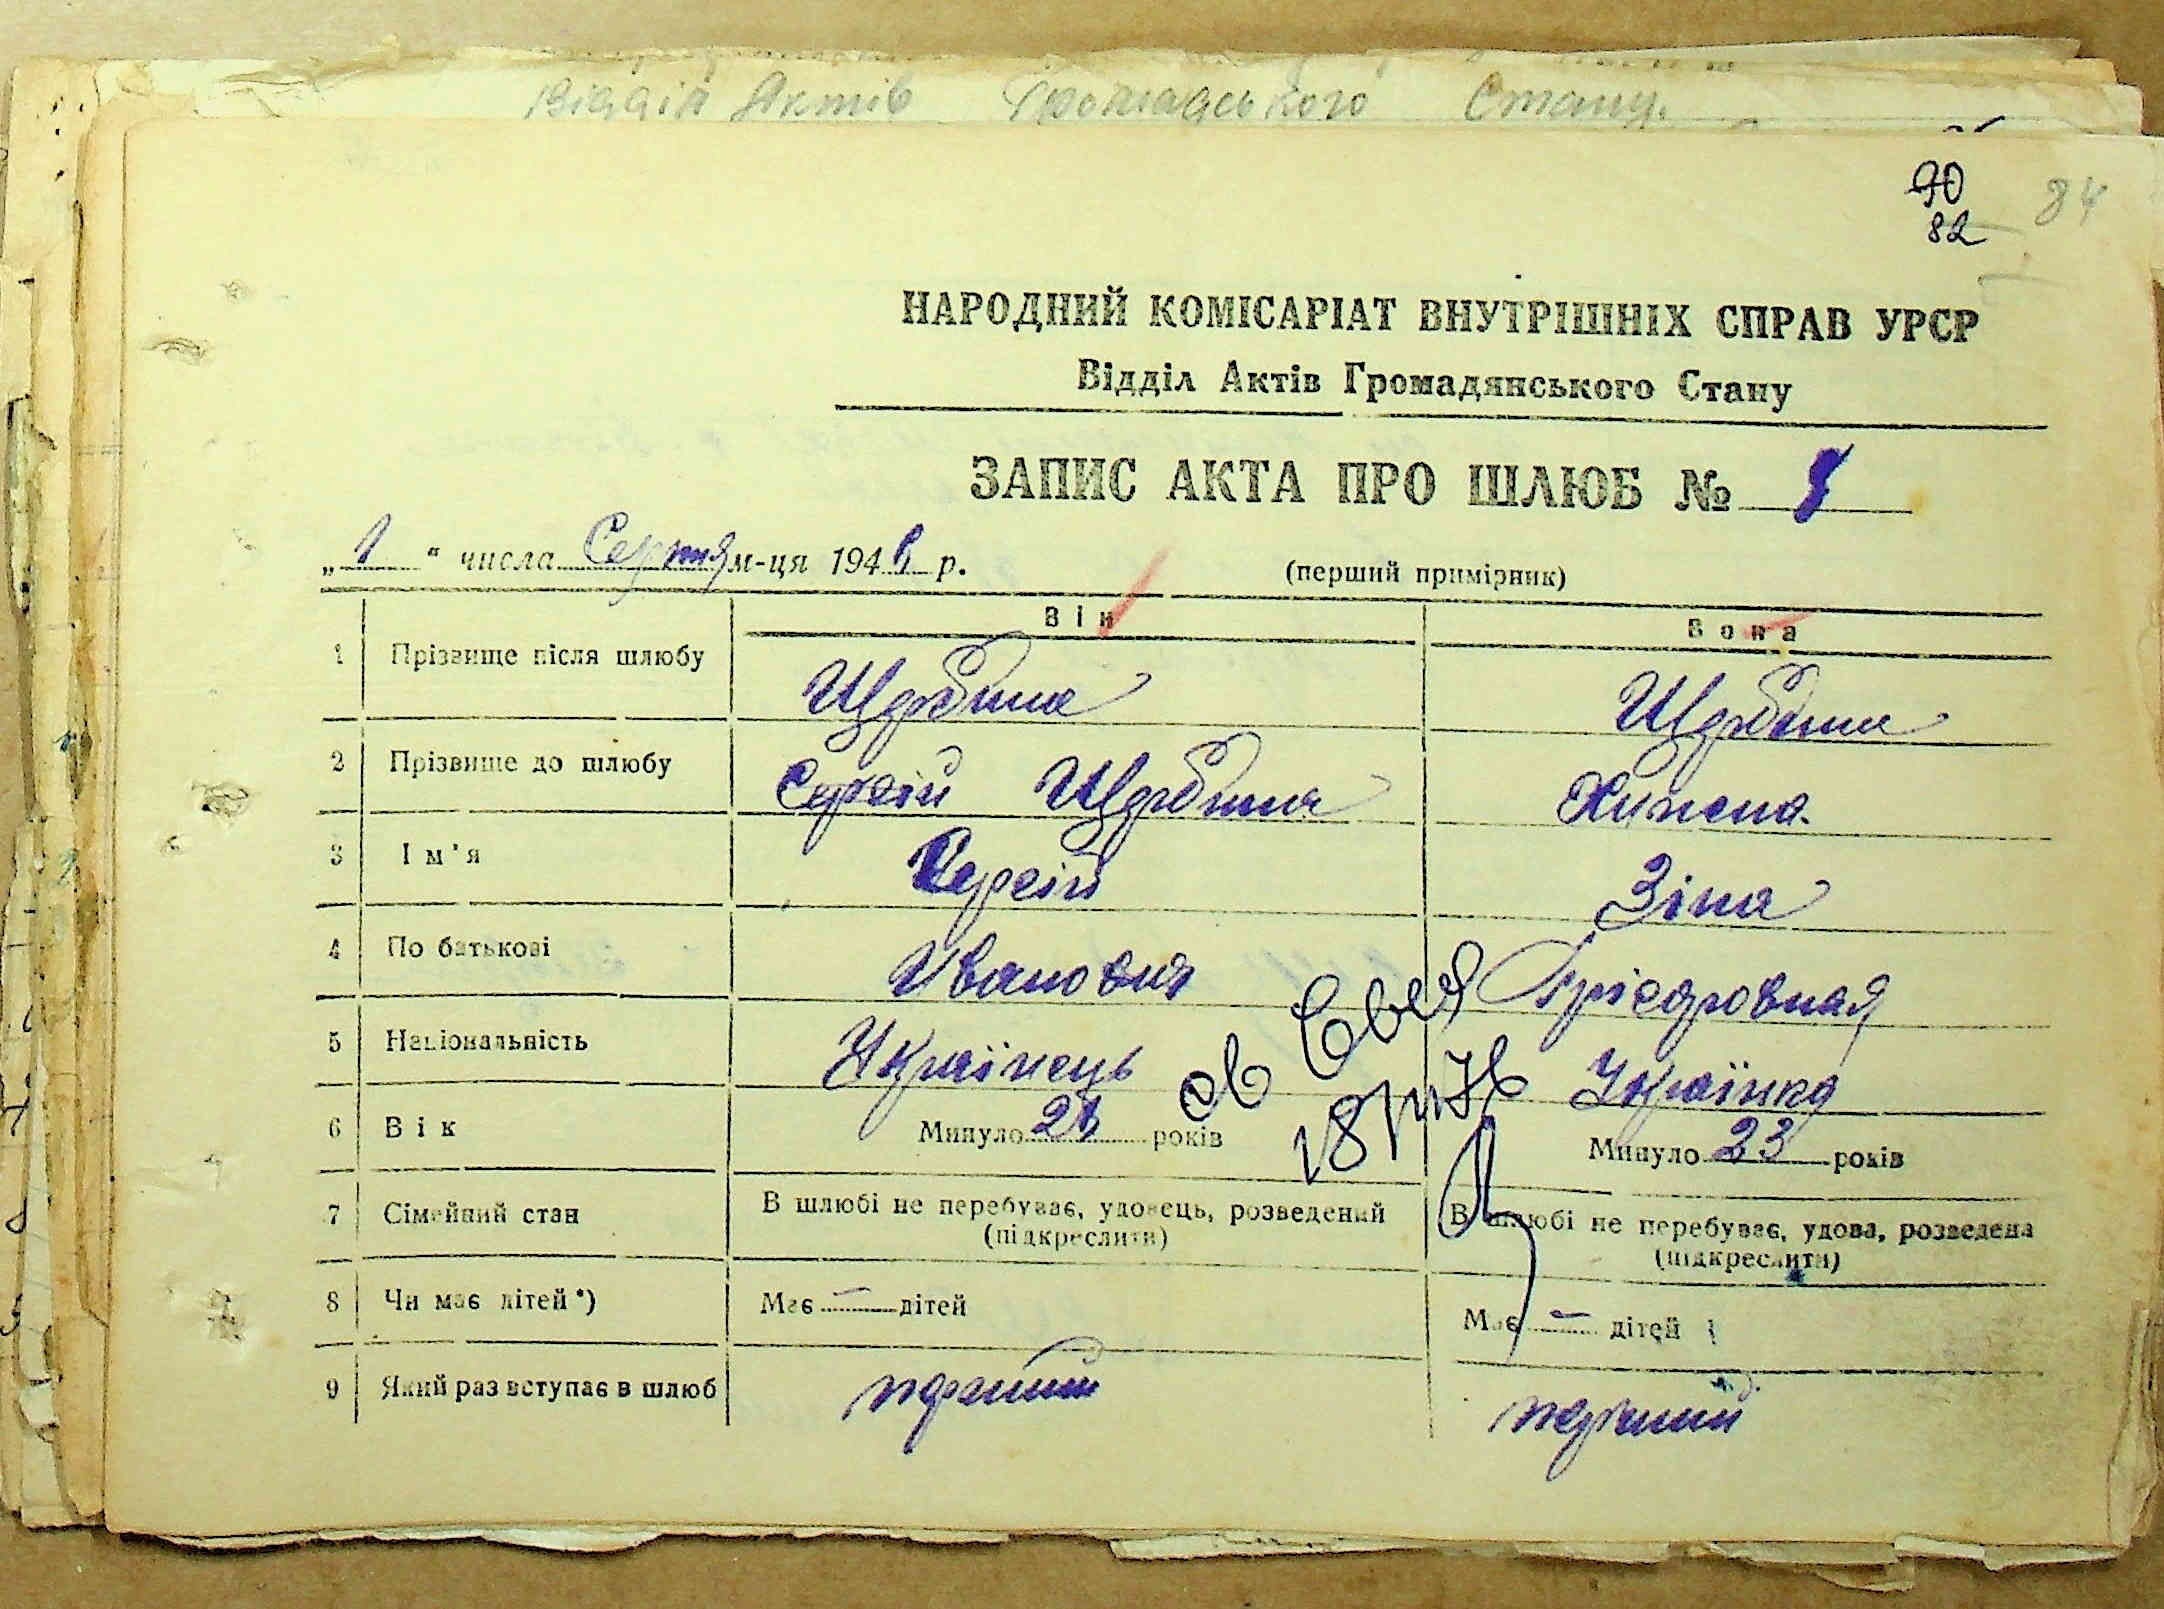 Відділ Актів Громадського Стану.
90
82
84
НАРОДНИЙ КОМІСАРІАТ ВНУТРІШНІХ СПРАВ УРСР
Відділ Актів Громадянського Стану
ЗАПИС АКТА ПРО ШЛЮБ №
„1“ числа Серпня м-ця 194 р.
(перший примірник)
Він Вона
1 Прізвище після шлюбу Щербина Щербина
2 Прізвище до шлюбу Сергій Щербина
3 Ім'я Сергій Зіна
4 По батькові Иванович
5 Національність Українець Українка
6 Вік Минуло років Минуло 23 років
7 Сімейний стан В шлюбі не перебуває, удовець, розведений (підкреслити) В шлюбі не перебуває, удова, розведена (підкреслити)
8 Чи має дітей *) Має — дітей Має — дітей
9 Який раз вступає в шлюб перший перший